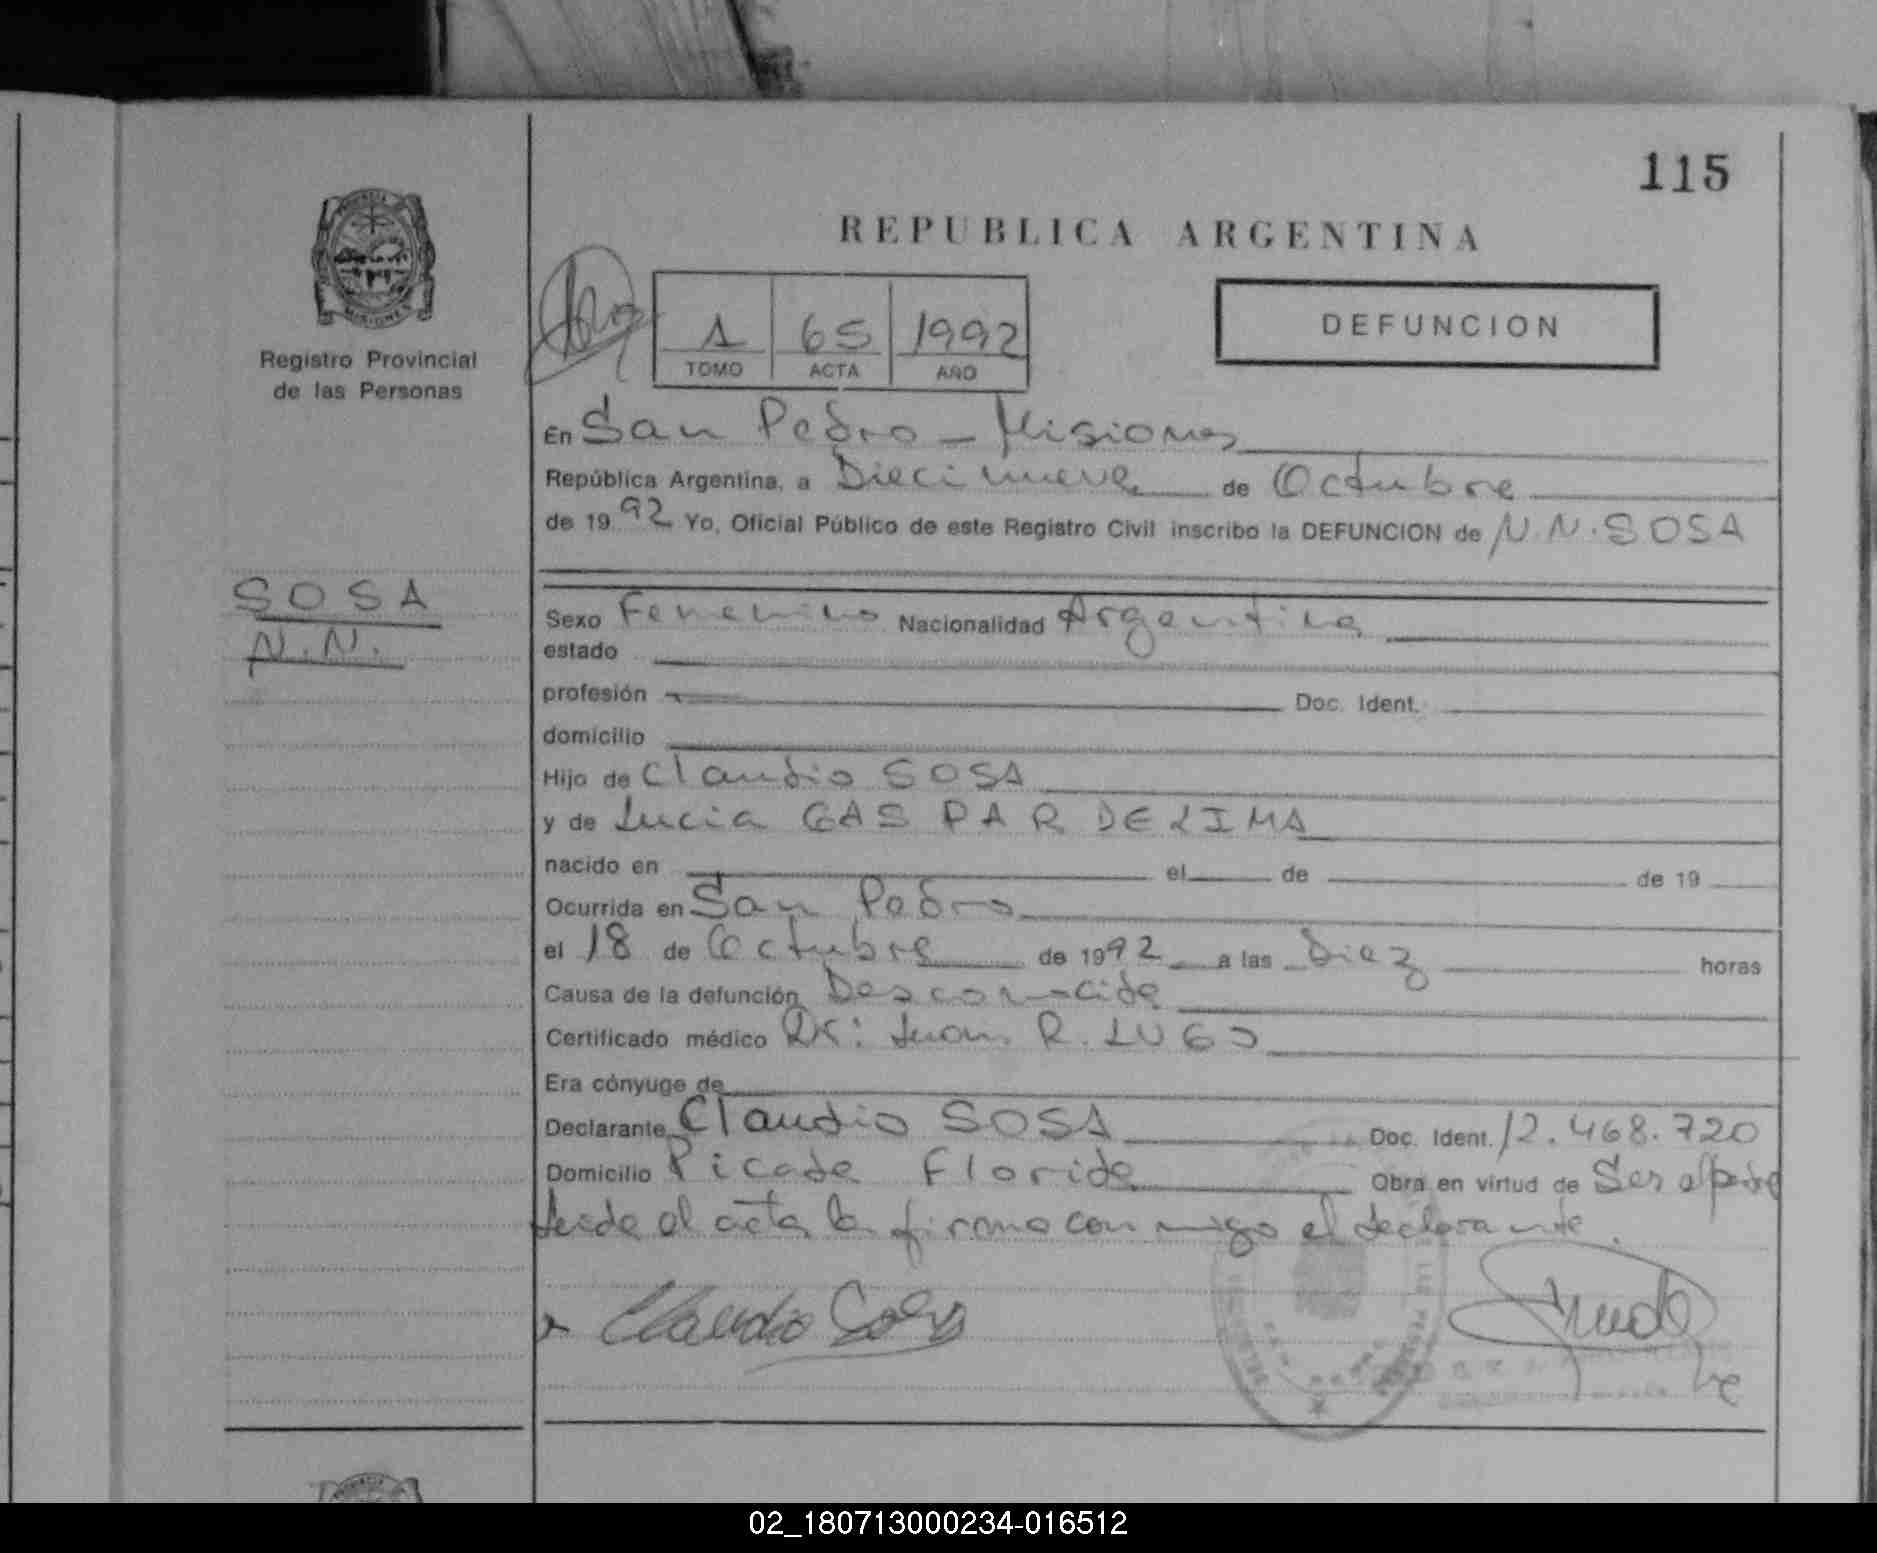 115
REPUBLICA ARGENTINA
MISIONES
Registro Provincial
de las Personas
1 65 1992
TOMO ACTA AÑO
DEFUNCION
En San Pedro - Misiones
República Argentina, a Diecinueve de Octubre
de 1992 Yo, Oficial Público de este Registro Civil inscribo la DEFUNCION de N.N. SOSA
SOSA
N.N.
Sexo Femenino Nacionalidad Argentina
estado
profesión Doc. Ident.
domicilio
Hijo de Claudio SOSA
y de Lucia GASPAR DE LIMA
nacido en el de de 19
Ocurrida en San Pedro
el 18 de Octubre de 1992 a las Diez horas
Causa de la defunción Desconocida
Certificado médico Dr: Juan R. LUGO
Era cónyuge de
Declarante Claudio SOSA Doc. Ident. 12.468.720
Domicilio Picada Florida Obra en virtud de Ser el padre
Leida el acta la firma con migo el declarante.
Claudio Sosa
02_180713000234-016512